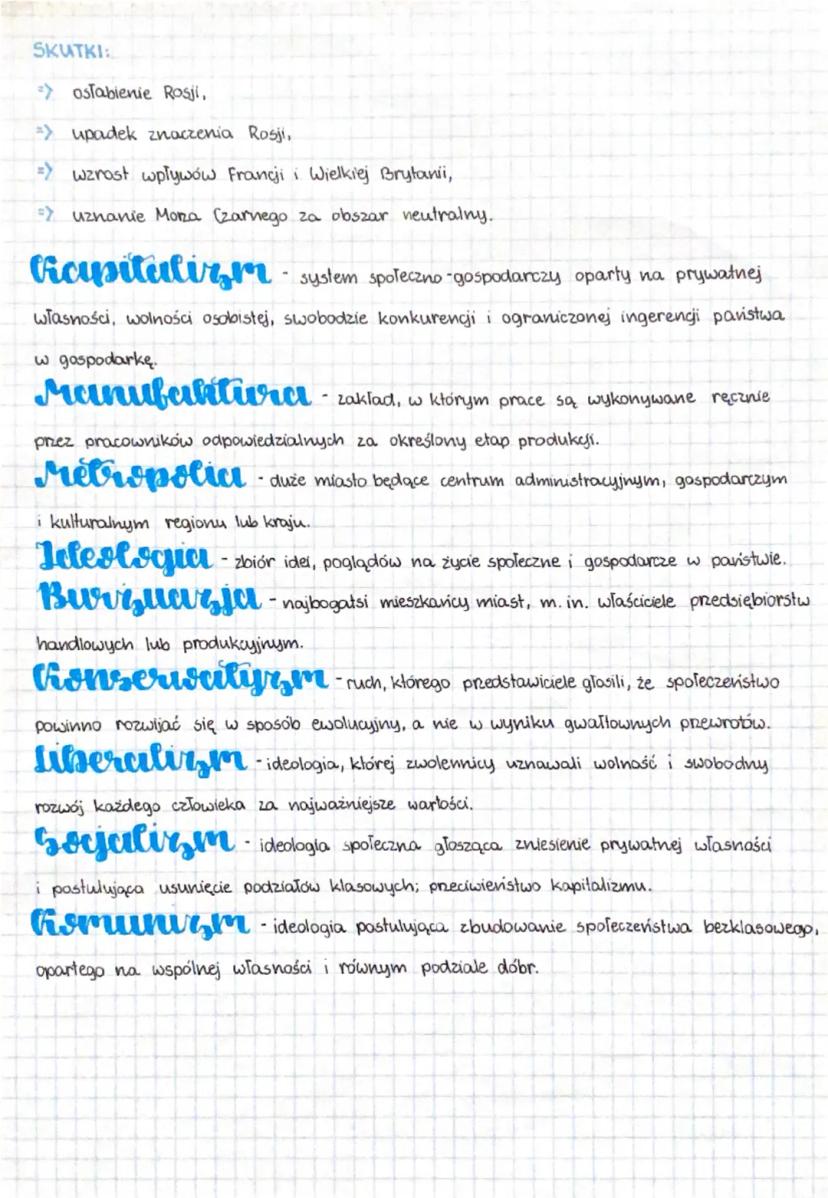 SKUTKI:
=> osłabienie Rosji,
=> upadek znaczenia Rosji,
=> wzrost wpływów Francji i Wielkiej Brytanii,
=> uznanie Morza Czarnego za obszar neutralny.
Kapitalizm - system społeczno-gospodarczy oparty na prywatnej
własności, wolności osobistej, swobodzie konkurencji i ograniczonej ingerencji państwa
w gospodarkę.
Manufaktura - zakład, w którym prace są wykonywane ręcznie
przez pracowników odpowiedzialnych za określony etap produkcji.
Metropolia - duże miasto będące centrum administracyjnym, gospodarczym
i kulturalnym regionu lub kraju.
Ideologia - zbiór idei, poglądów na życie społeczne i gospodarcze w państwie.
Burżuazja - najbogatsi mieszkańcy miast, m. in. właściciele przedsiębiorstw
handlowych lub produkcyjnym.
Konserwatyzm - ruch, którego przedstawiciele głosili, że społeczeństwo
powinno rozwijać się w sposób ewolucyjny, a nie w wyniku gwałtownych przewrotów.
Liberalizm - ideologia, której zwolennicy uznawali wolność i swobodny
rozwój każdego człowieka za najważniejsze wartości.
Socjalizm - ideologia społeczna głosząca zniesienie prywatnej własności
i postulująca usunięcie podziałów klasowych; przeciwieństwo kapitalizmu.
Komunizm - ideologia postulująca zbudowanie społeczeństwa bezklasowego,
opartego na wspólnej własności i równym podziale dóbr.